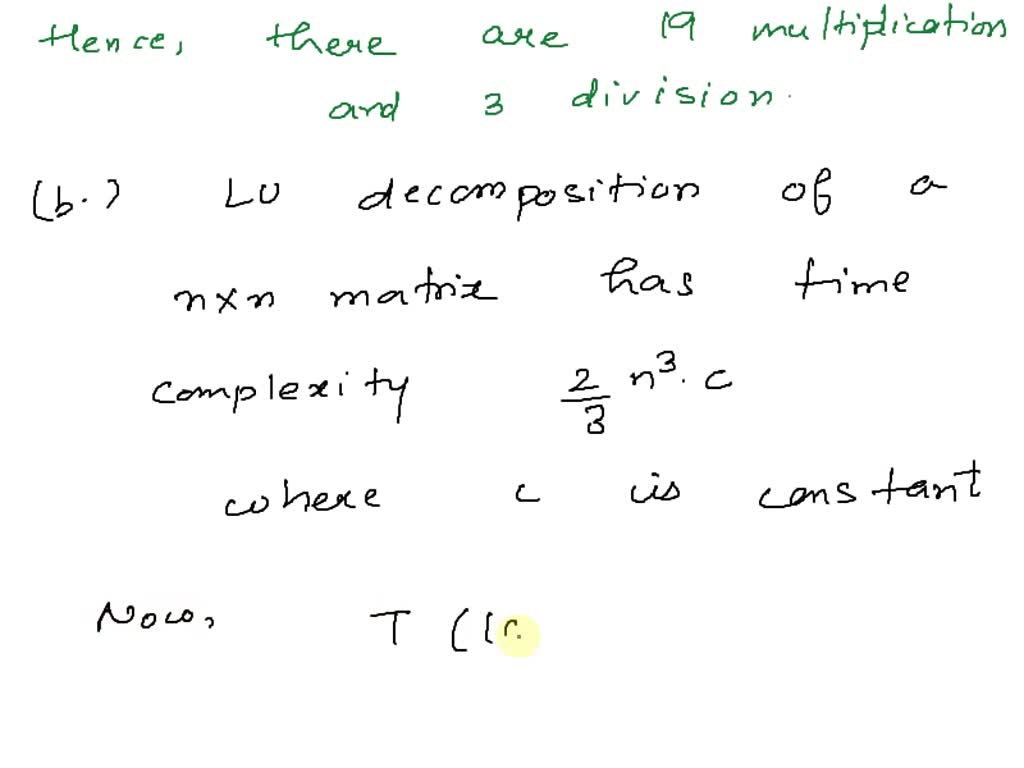 Hence, there are 19 multiplication
and 3 division.
(b.) LU decomposition of a
n×n matrix has time
complexity 2/3 n³. c
where c is constant
Now, T (1